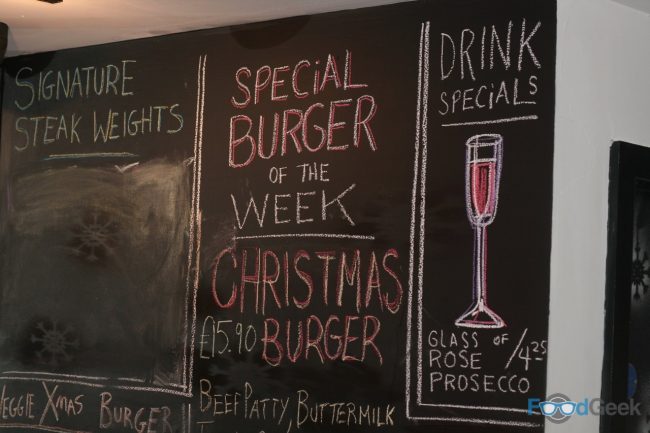 SIGNATURE
STEAK WEIGHTS
VEGGIE XMAS BURGER
SPECIAL
BURGER
OF THE
WEEK
CHRISTMAS
£15.90 BURGER
BEEF PATTY, BUTTERMILK
DRINK
SPECIALS
GLASS OF
ROSE
PROSECCO
/4.25
FoodGeek